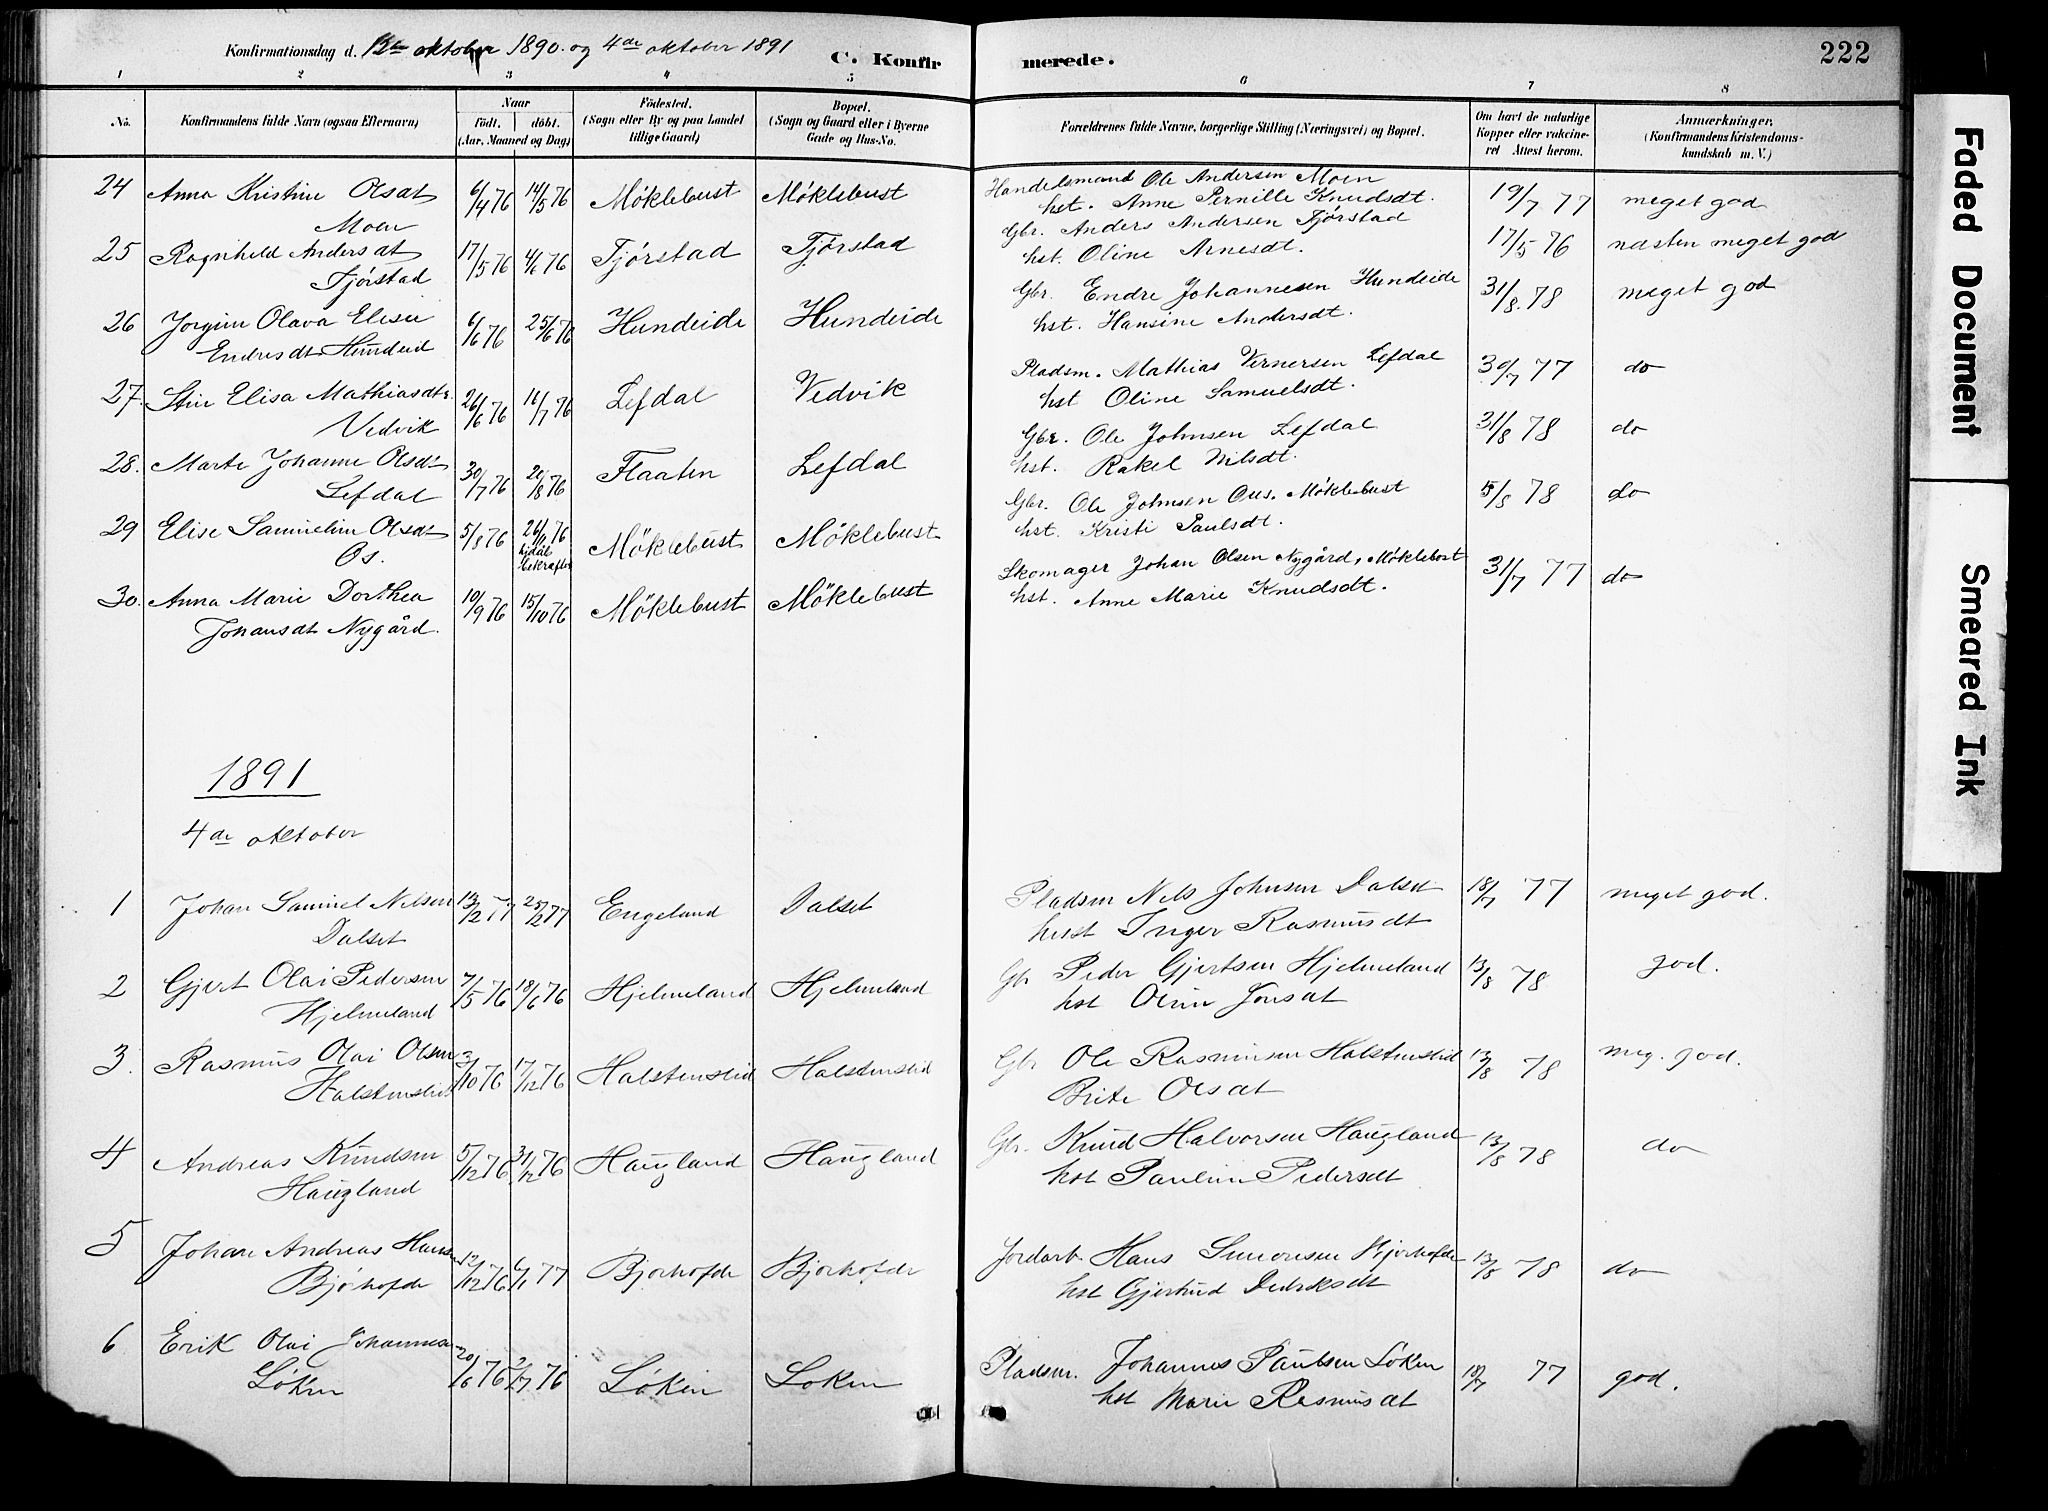 Konfirmationsdag d. 12te oktober 1890 og 4de oktober 1891
C. Konfirmerede.
222
1 2 3 4 5 6 7 8
No.
Konfirmandens fulde Navn (ogsaa Efternavn)
Naar
födt. döbt.
(Aar, Maaned og Dag)
Födested.
(Sogn eller By og paa Landet
tillige Gaard)
Bopæl.
(Sogn og Gaard eller i Byerne
Gade og Hus-No.
Forældrenes fulde Navne, borgerlige Stilling (Næringsvei) og Bopæl.
Om havt de naturlige
Kopper eller vakcine-
ret Attest herom.
Anmærkninger,
(Konfirmandens Kristendoms-
kundskab m. V.)
24 Anna Kristine Olsdt Moen 6/4 76 14/5 76 Møklebust Møklebust Handelsmand Ole Andersen Moen 19/7 77 meget god
hst. Anne Pernille Knudsdt.
25 Ragnhild Andersdt Tjørstad 17/5 76 4/6 76 Tjørstad Tjørstad Gbr. Anders Andersen Tjørstad 17/5 76 næsten meget god
hst. Oline Arnesdt.
26 Jorgine Olava Elisie Endresdt Hundeid 6/6 76 25/6 76 Hundeide Hundeide Gbr. Endre Johannesen Hundeide 31/8 78 meget god
hst. Hansine Andersdt.
27. Stine Elisa Mathiasdtr. Vedvik 26/6 76 16/7 76 Lefdal Vedvik Pladsm. Mathias Vernersen Lefdal 30/7 77 do
hst Oline Samuelsdt.
28. Marte Johanne Olsdt Lefdal 30/7 76 20/8 76 Flaaten Lefdal Gbr. Ole Johnsen Lefdal 31/8 78 do
hst. Rakel Nilsdt.
29 Elise Samueline Olsdt Os. 5/8 76 Møklebust Møklebust Gbr. Ole Johnsen Ous. Møklebust 5/8 78 do
hst. Kristi Paulsdt.
30. Anna Marie Dorthea Johansdt Nygård. 10/9 76 15/10 76 Møklebust Møklebust Skomager Johan Olsen Nygård, Møklebost 31/7 77 do
hst. Anne Marie Knudsdt.
1891
4de oktober
1 Johan Samuel Nilsen Dalset 13/2 77 25/2 77 Engeland Dalset Pladsm Nils Johnsen Dalset 18/7 77 meget god.
hust Inger Rasmusdt
2 Gjert Olai Pedersen Hjelmeland 7/5 76 18/6 76 Hjelmeland Hjelmeland Gbr Peder Gjertsen Hjelmeland 13/8 78 god.
hst Oline Jonsdt
3. Rasmus Olai Olsen Halstenseid 3/10 76 17/12 76 Halstenseid Halstenseid Gbr Ole Rasmusen Halstenseid 13/8 78 meg. god.
Brite Olsdt
4 Andreas Knudsen Haugland 5/12 76 31/12 76 Haugland Haugland Gbr. Knud Halvorsen Haugland 13/8 78 do
hst Pauline Pedersdt
5 Johan Andreas Hansen Bjørhofde 12/12 76 6/1 77 Bjorhofde Bjorhofde Jordarb. Hans Simonsen Bjorhofde 13/8 78 do
hst Gjertrud Dedriksdt
6 Erik Olai Johannesen Løken 20/6 76 2/7 76 Løken Loken Pladsm. Johannes Paulsen Løken 18/7 77 god.
hst Marie Rasmusdt
Faded Document
Smeared Ink